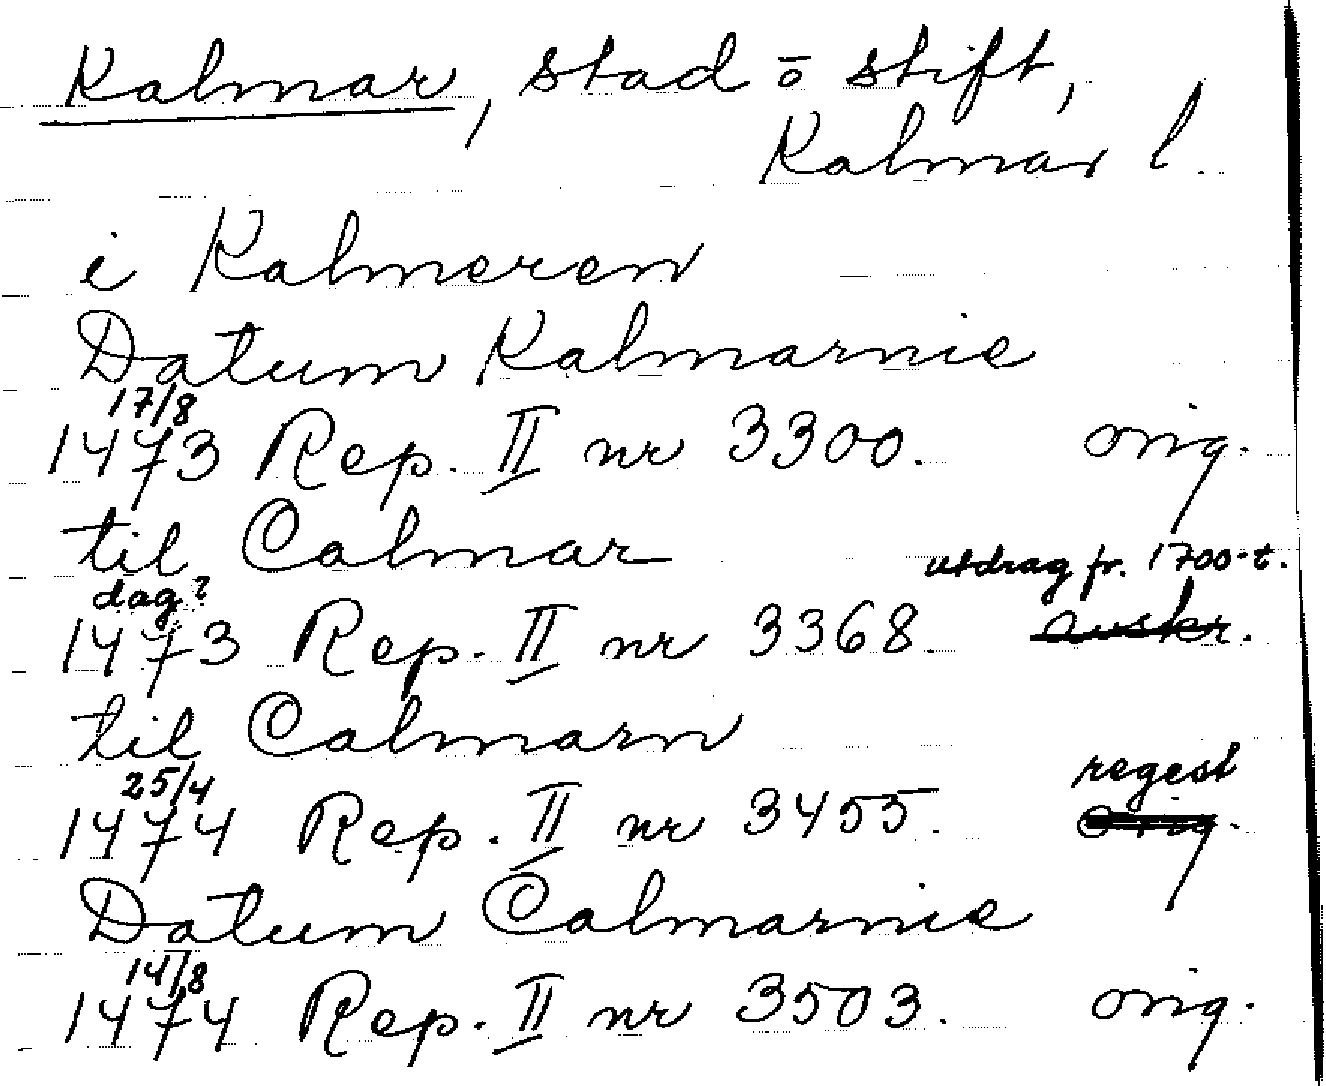 Kalmar, stad o stift,
Kalmar l.
i Kalmeren
Datum Kalmarnie
17/8
1473 Rep. II nr 3300. orig.
til Calmar
utdrag fr. 1700-t.
dag?
1473 Rep. II nr 3368. avskr.
til Calmarn
regest
25/4
1474 Rep. II nr 3455. orig.
Datum Calmarnie
14/8
1474 Rep. II nr 3503. orig.